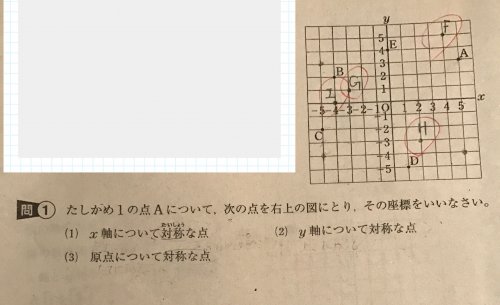 y
5
F
4
E
3
A
B
2
G
I
1
-5 -4 -3 -2 -1 O 1 2 3 4 5 x
-1
C
-2
H
-3
-4
D
-5
問 1 たしかめ1の点Aについて,次の点を右上の図にとり,その座標をいいなさい。
たいしょう
(1) x軸について対称な点 (2) y軸について対称な点
(3) 原点について対称な点